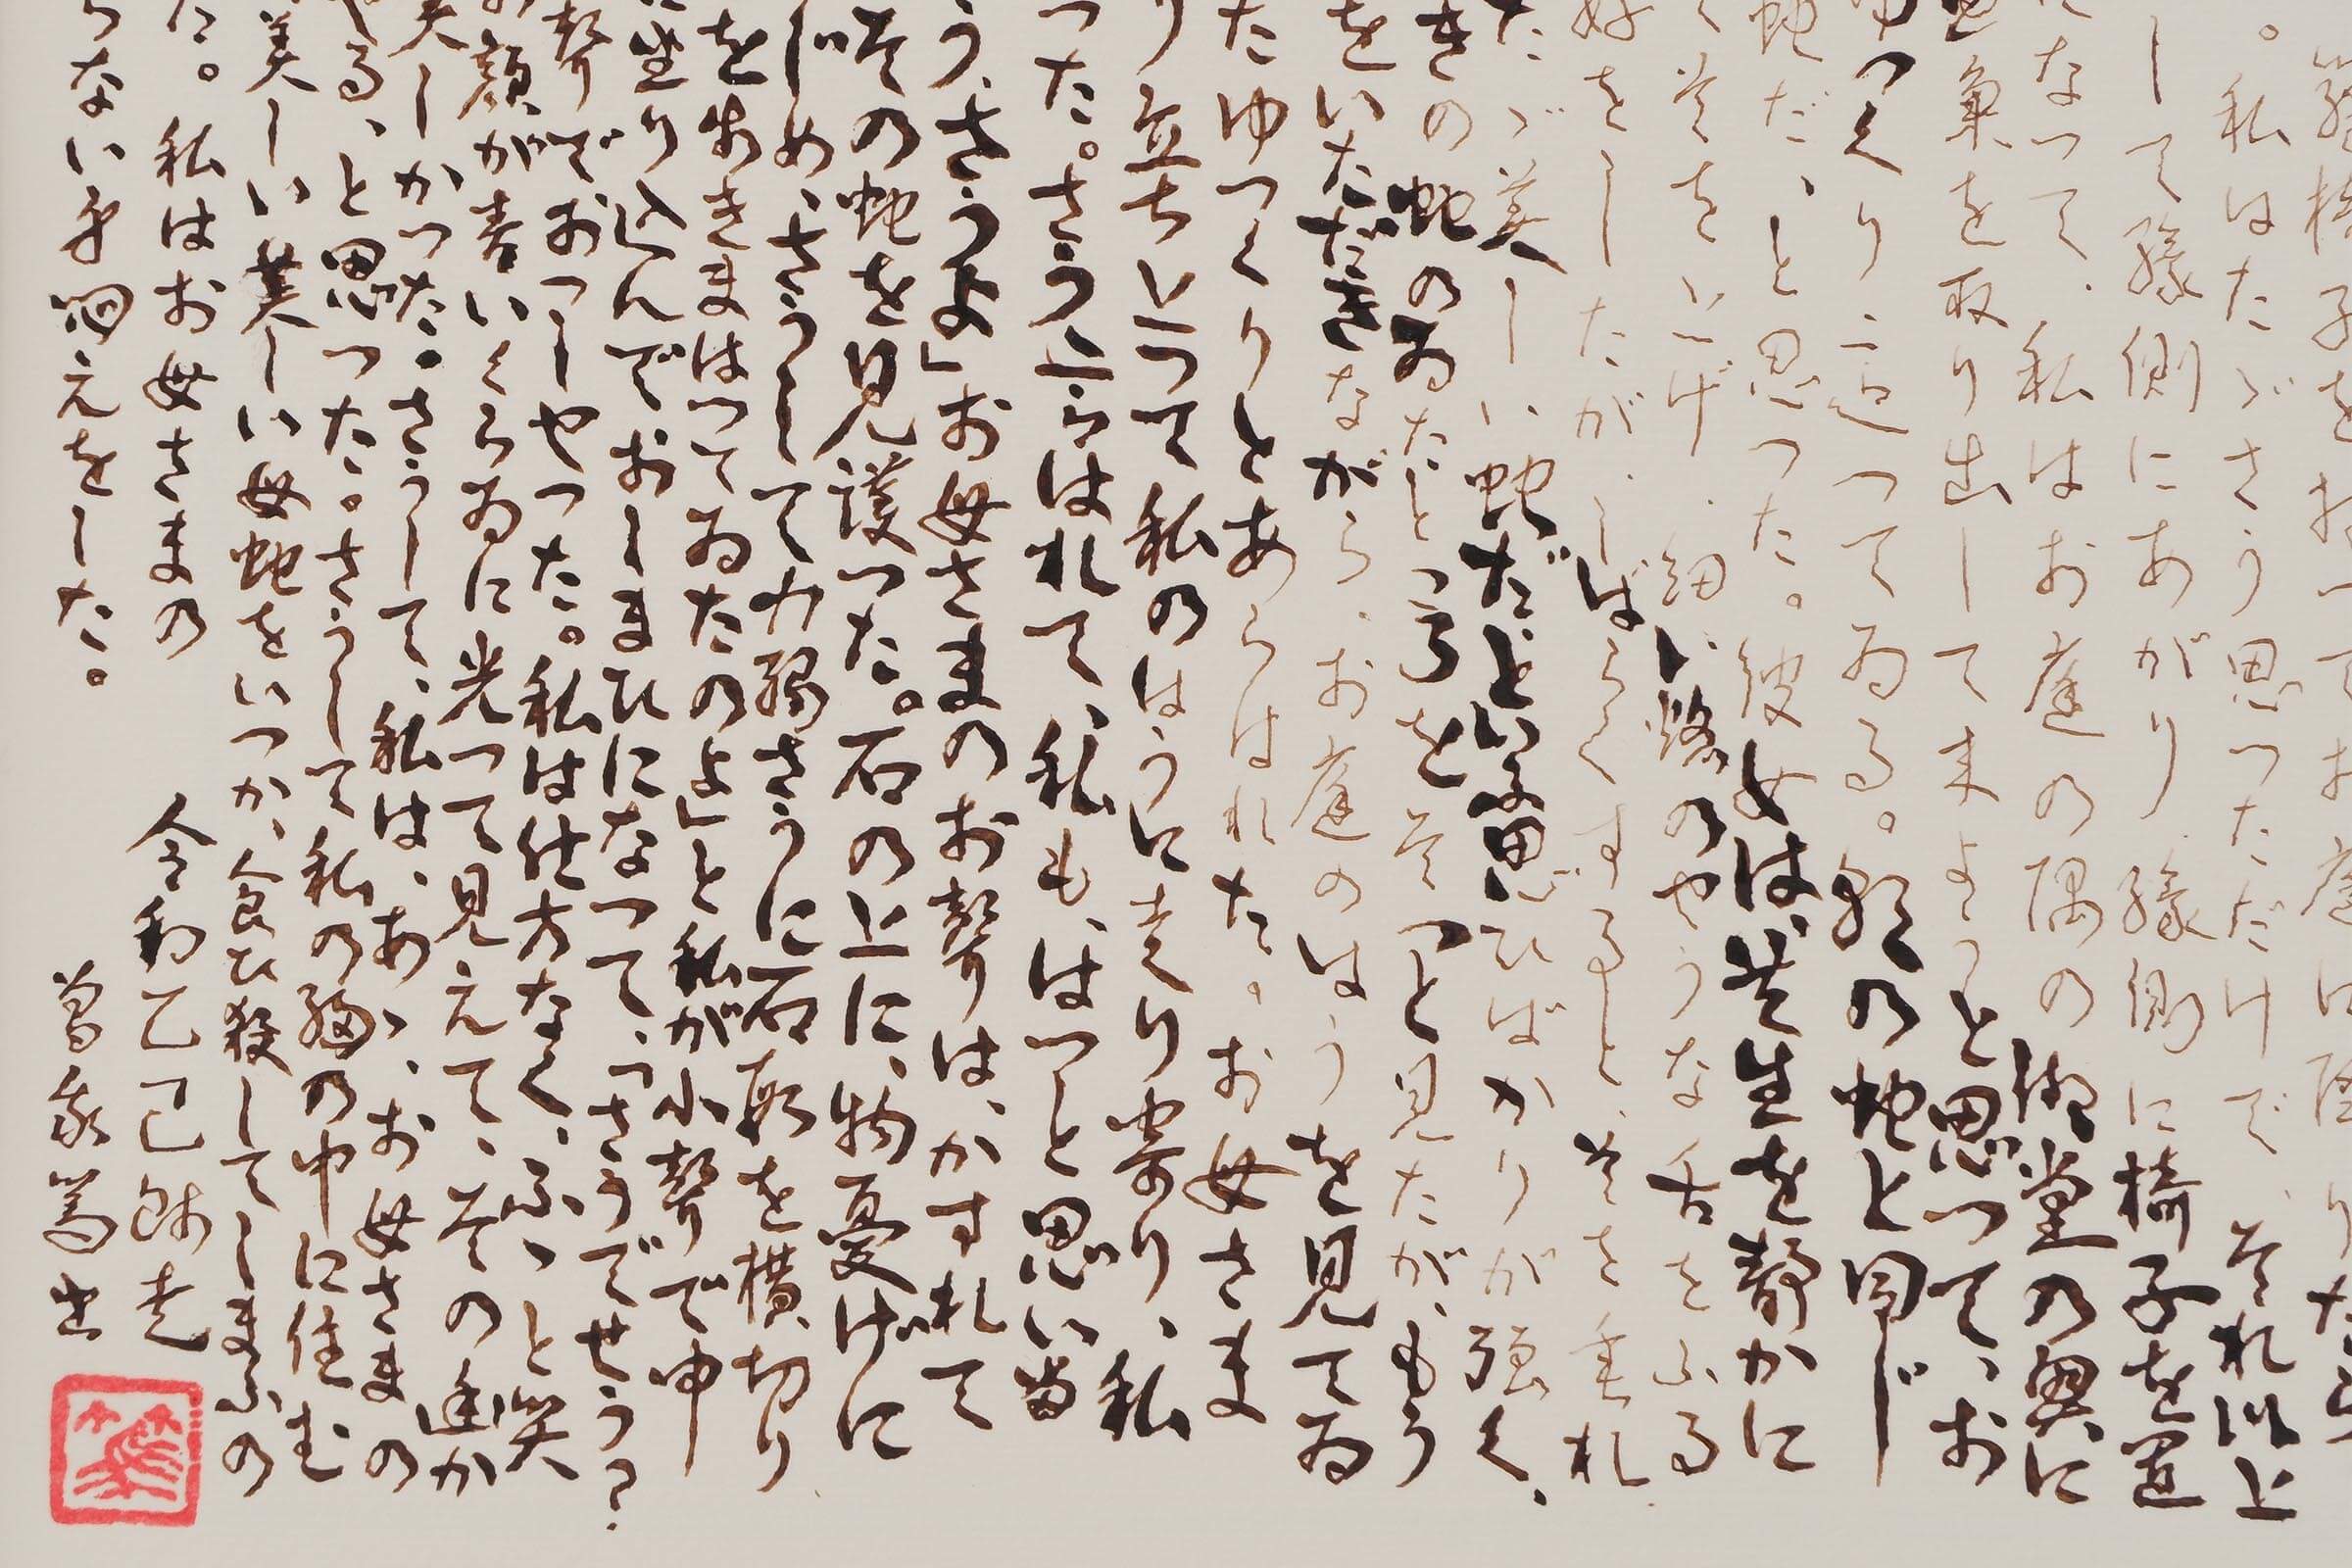 籐椅子をお
。私はたゞさう思つただけで、それ以上
して縁側にあがり、縁側に椅子を置
になつて、私はお庭の隅の御堂の奥に
画集を取り出して来ようと思つて、お
ゆつくり這つてゐる。朝の蛇と同じ
蛇だ、と思つた。彼女は、芝生を静かに
くそを上げ、細い焔のやうな舌をふる
をしたが、しばらくすると、首を垂れ
たゞ美しい蛇だ、といふ思ひばかりが強く、
きの蛇のゐたところをそつと見たが、もう
をいただきながら、お庭のはうを見てゐ
たゆつくりとあらはれた。お母さま
り立ち上つて私のはうに走り寄り、私
つた。さう言はれて、私も、はつと思い當
う、さうよ」お母さまのお聲は、かすれて
その蛇を見護つた。石の上に、物憂げに
じめ、さうして力弱さうに石段を横切り
を歩きまはつてゐたのよ」と私が小聲で申し
に坐り込んで、おしまひになつて、「さうでせう?
聲でおつしやつた。私は仕方なく、ふゝと笑
お顔が青いくらゐに光つて見えて、その幽か
美しかつた。さうして、私は、あゝ、お母さまの
やる、と思つた。さうして私の胸の中に住む
美しい美しい母蛇をいつか、食ひ殺してしまふの
た。私はお母さまの
らない身悶えをした。
令和乙巳師走